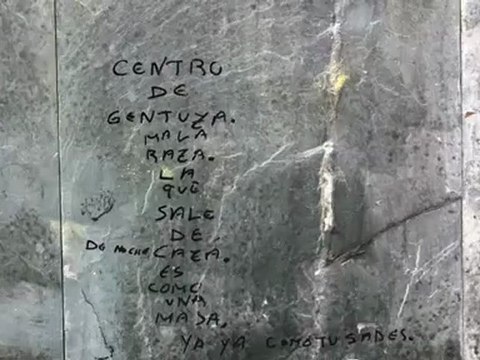 CENTRO
DE
GENTUZA.
MALA
RAZA.
LA
QUE
SALE
DE
DE NOCHE CAZA.
ES
COMO
UNA
MASA,
YA YA COMOTUSABES.